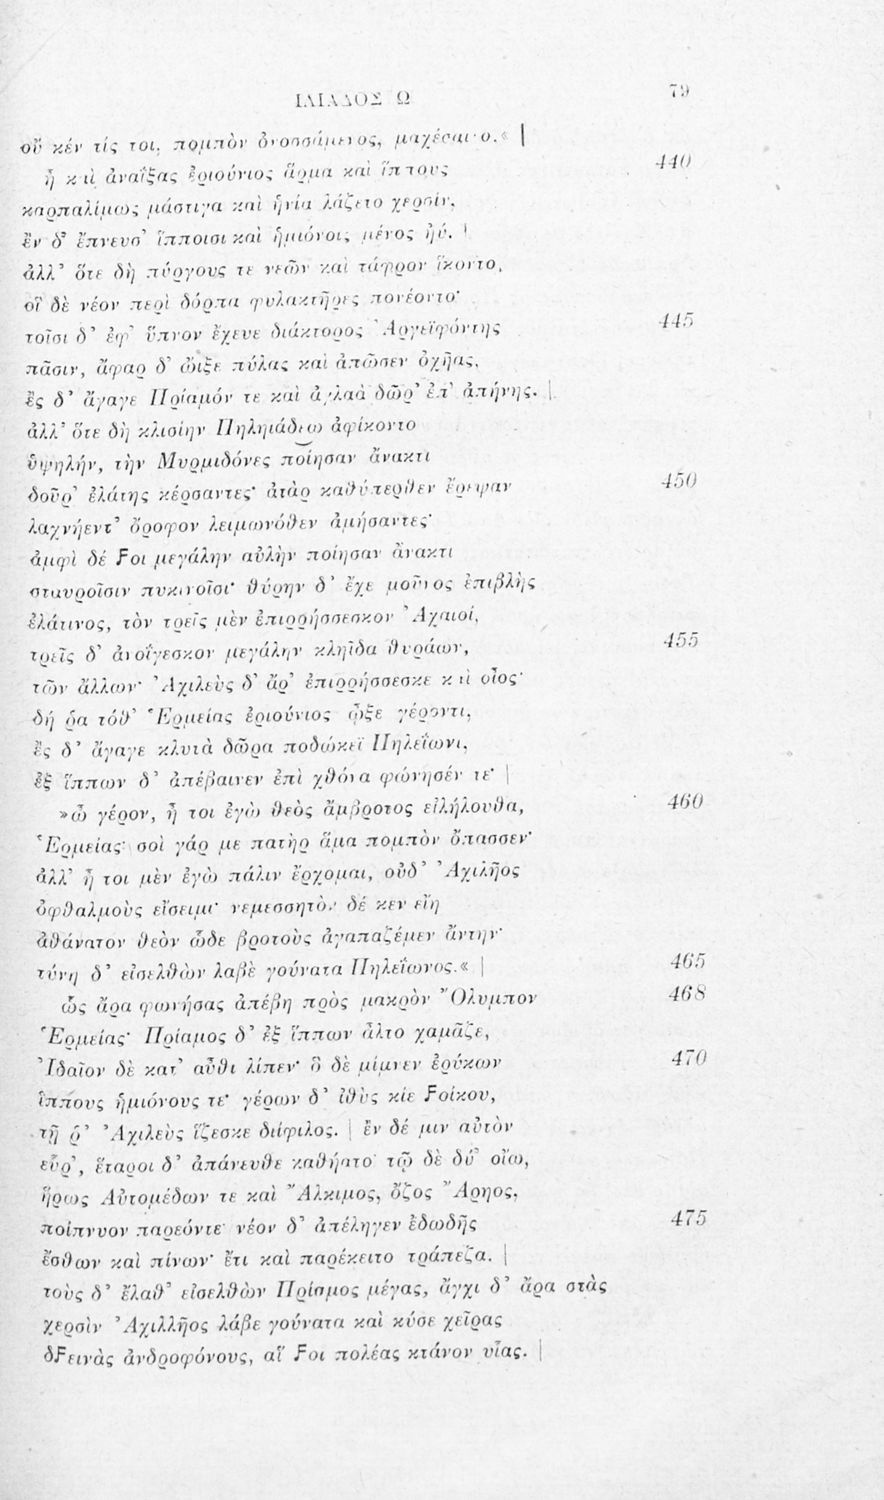 ΙΛΙΑΔΟΣ Ω 79
οὔ κέν τίς τοι, πομπὸν ὀνοσσάμενος, μαχέσαιτο.« |
ἦ καὶ ἀναΐξας ἐριούνιος ἅρμα καὶ ἵππους 440
καρπαλίμως μάστιγα καὶ ἡνία λάζετο χερσίν,
ἐν δ' ἔπνευσ' ἵπποισι καὶ ἡμιόνοις μένος ἠύ. |
ἀλλ' ὅτε δὴ πύργους τε νεῶν καὶ τάφρον ἵκοντο,
οἳ δὲ νέον περὶ δόρπα φυλακτῆρες πονέοντο·
τοῖσι δ' ἐφ' ὕπνον ἔχευε διάκτορος Ἀργεϊφόντης 445
πᾶσιν, ἄφαρ δ' ὤιξε πύλας καὶ ἀπῶσεν ὀχῆας,
ἐς δ' ἄγαγε Πρίαμόν τε καὶ ἀγλαὰ δῶρ' ἐπ' ἀπήνης. |
ἀλλ' ὅτε δὴ κλισίην Πηληιάδεω ἀφίκοντο
ὑψηλήν, τὴν Μυρμιδόνες ποίησαν ἄνακτι
δοῦρ' ἐλάτης κέρσαντες· ἀτὰρ καθύπερθεν ἔρεψαν 450
λαχνήεντ' ὄροφον λειμωνόθεν ἀμήσαντες·
ἀμφὶ δέ Ϝοι μεγάλην αὐλὴν ποίησαν ἄνακτι
σταυροῖσιν πυκινοῖσι· θύρην δ' ἔχε μοῦνος ἐπιβλὴς
ἐλάτινος, τὸν τρεῖς μὲν ἐπιρρήσσεσκον Ἀχαιοί,
τρεῖς δ' ἀνοΐγεσκον μεγάλην κληῖδα θυράων, 455
τῶν ἄλλων· Ἀχιλεὺς δ' ἄρ' ἐπιρρήσσεσκε καὶ οἶος·
δή ῥα τόθ' Ἑρμείας ἐριούνιος ᾦξε γέροντι,
ἐς δ' ἄγαγε κλυτὰ δῶρα ποδώκεϊ Πηλεΐωνι,
ἐξ ἵππων δ' ἀπέβαινεν ἐπὶ χθόνα φώνησέν τε· |
»ὦ γέρον, ἦ τοι ἐγὼ θεὸς ἄμβροτος εἰλήλουθα, 460
Ἑρμείας· σοὶ γάρ με πατὴρ ἅμα πομπὸν ὄπασσεν·
ἀλλ' ἦ τοι μὲν ἐγὼ πάλιν ἔρχομαι, οὐδ' Ἀχιλῆος
ὀφθαλμοὺς εἴσειμι· νεμεσσητὸν δέ κεν εἴη
ἀθάνατον θεὸν ὧδε βροτοὺς ἀγαπαζέμεν ἄντην·
τύνη δ' εἰσελθὼν λαβὲ γούνατα Πηλεΐωνος.« | 465
ὣς ἄρα φωνήσας ἀπέβη πρὸς μακρὸν Ὄλυμπον 468
Ἑρμείας· Πρίαμος δ' ἐξ ἵππων ἆλτο χαμᾶζε,
Ἰδαῖον δὲ κατ' αὖθι λίπεν· ὃ δὲ μίμνεν ἐρύκων 470
ἵππους ἡμιόνους τε· γέρων δ' ἰθὺς κίε Ϝοίκου,
τῇ ῥ' Ἀχιλεὺς ἵζεσκε διίφιλος. | ἐν δέ μιν αὐτὸν
εὗρ', ἕταροι δ' ἀπάνευθε καθήατο· τῷ δὲ δύ' οἴω,
ἥρως Αὐτομέδων τε καὶ Ἄλκιμος, ὄζος Ἄρηος,
ποίπνυον παρεόντε· νέον δ' ἀπέληγεν ἐδωδῆς 475
ἔσθων καὶ πίνων· ἔτι καὶ παρέκειτο τράπεζα. |
τοὺς δ' ἔλαθ' εἰσελθὼν Πρίαμος μέγας, ἄγχι δ' ἄρα στὰς
χερσὶν Ἀχιλλῆος λάβε γούνατα καὶ κύσε χεῖρας
δϜεινὰς ἀνδροφόνους, αἵ Ϝοι πολέας κτάνον υἷας. |